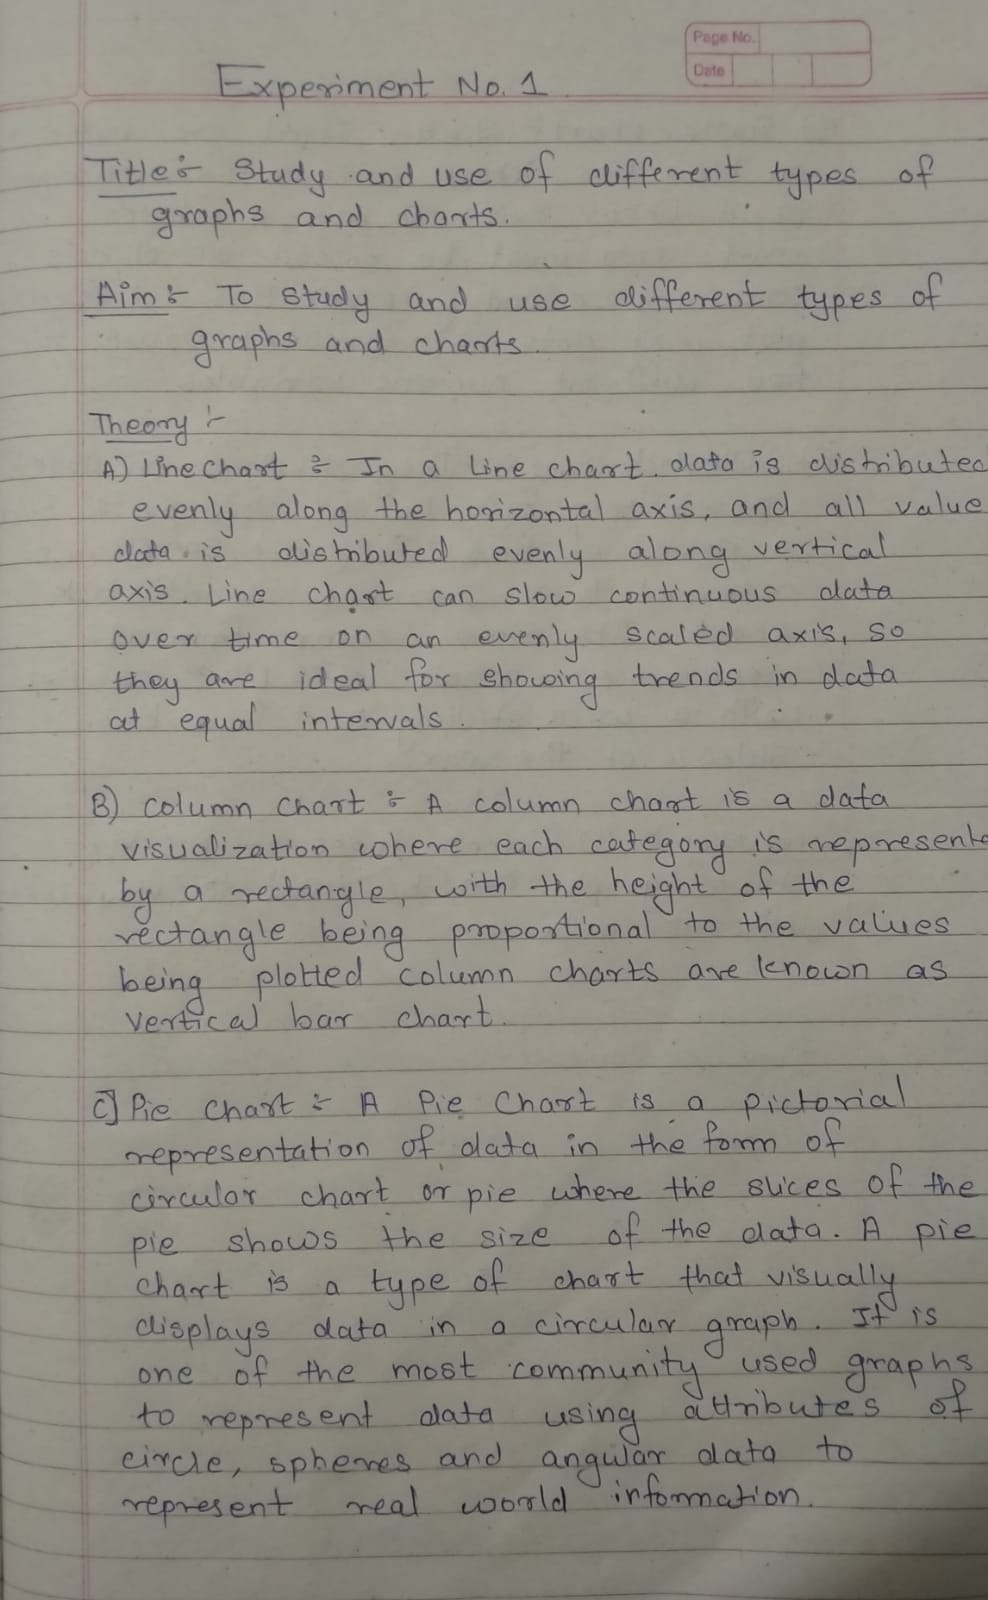 Page No.
Date
Experiment No. 1
Title :- Study and use of different types of
graphs and charts.
Aim :- To study and use different types of
graphs and charts.
Theory :-
A) Line chart :- In a line chart. data is distributed
evenly along the horizontal axis, and all value
data is distributed evenly along vertical
axis. Line chart can slow continuous data
over time on an evenly scaled axis, so
they are ideal for showing trends in data
at equal intervals.
B) Column chart :- A column chart is a data
visualization where each category is represente
by a rectangle, with the height of the
rectangle being proportional to the values
being plotted column charts are known as
vertical bar chart.
C] Pie chart :- A Pie Chart is a pictorial
representation of data in the form of
circular chart or pie where the slices of the
pie shows the size of the data. A pie
chart is a type of chart that visually
displays data in a circular graph. It is
one of the most community used graphs
to represent data using attributes of
circle, spheres and angular data to
represent real woorld information.